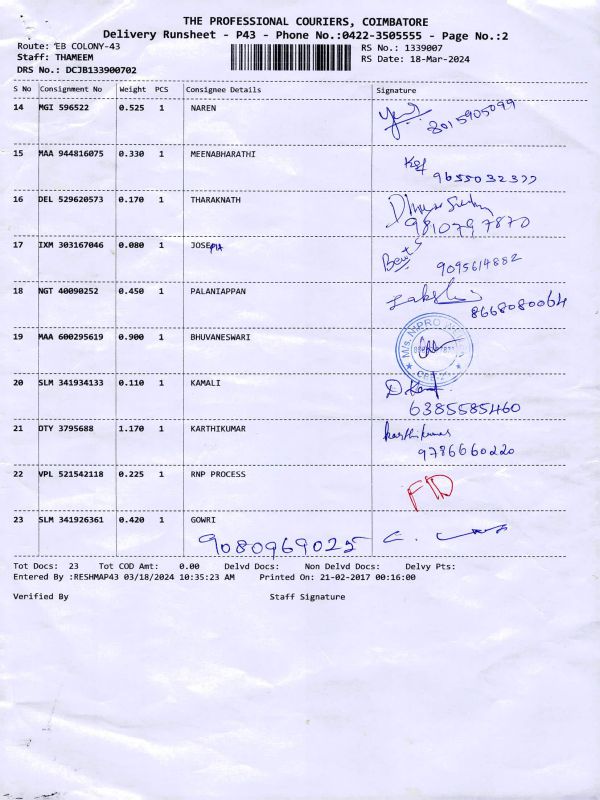 THE PROFESSIONAL COURIERS, COIMBATORE
Delivery Runsheet - P43 - Phone No.:0422-3505555 - Page No.:2
Route: EB COLONY-43 RS No.: 1339007
Staff: THAMEEM RS Date: 18-Mar-2024
DRS No.: DCJB133900702
S No Consignment No Weight PCS Consignee Details Signature
14 MGI 596522 0.525 1 NAREN
8015905099
15 MAA 944816075 0.330 1 MEENABHARATHI
9655032377
16 DEL 529620573 0.170 1 THARAKNATH
9810797870
17 IXM 303167046 0.080 1 JOSEPIA
9095614882
18 NGT 40090252 0.450 1 PALANIAPPAN
Lakshmi
8668080064
19 MAA 600295619 0.900 1 BHUVANESWARI
M/s. NIPRO
20 SLM 341934133 0.110 1 KAMALI
6385585460
21 DTY 3795688 1.170 1 KARTHIKUMAR karthikumar
9786660220
22 VPL 521542118 0.225 1 RNP PROCESS
FID
23 SLM 341926361 0.420 1 GOWRI
9080969025
Tot Docs: 23 Tot COD Amt: 0.00 Delvd Docs: Non Delvd Docs: Delvy Pts:
Entered By :RESHMAP43 03/18/2024 10:35:23 AM Printed On: 21-02-2017 00:16:00
Verified By Staff Signature